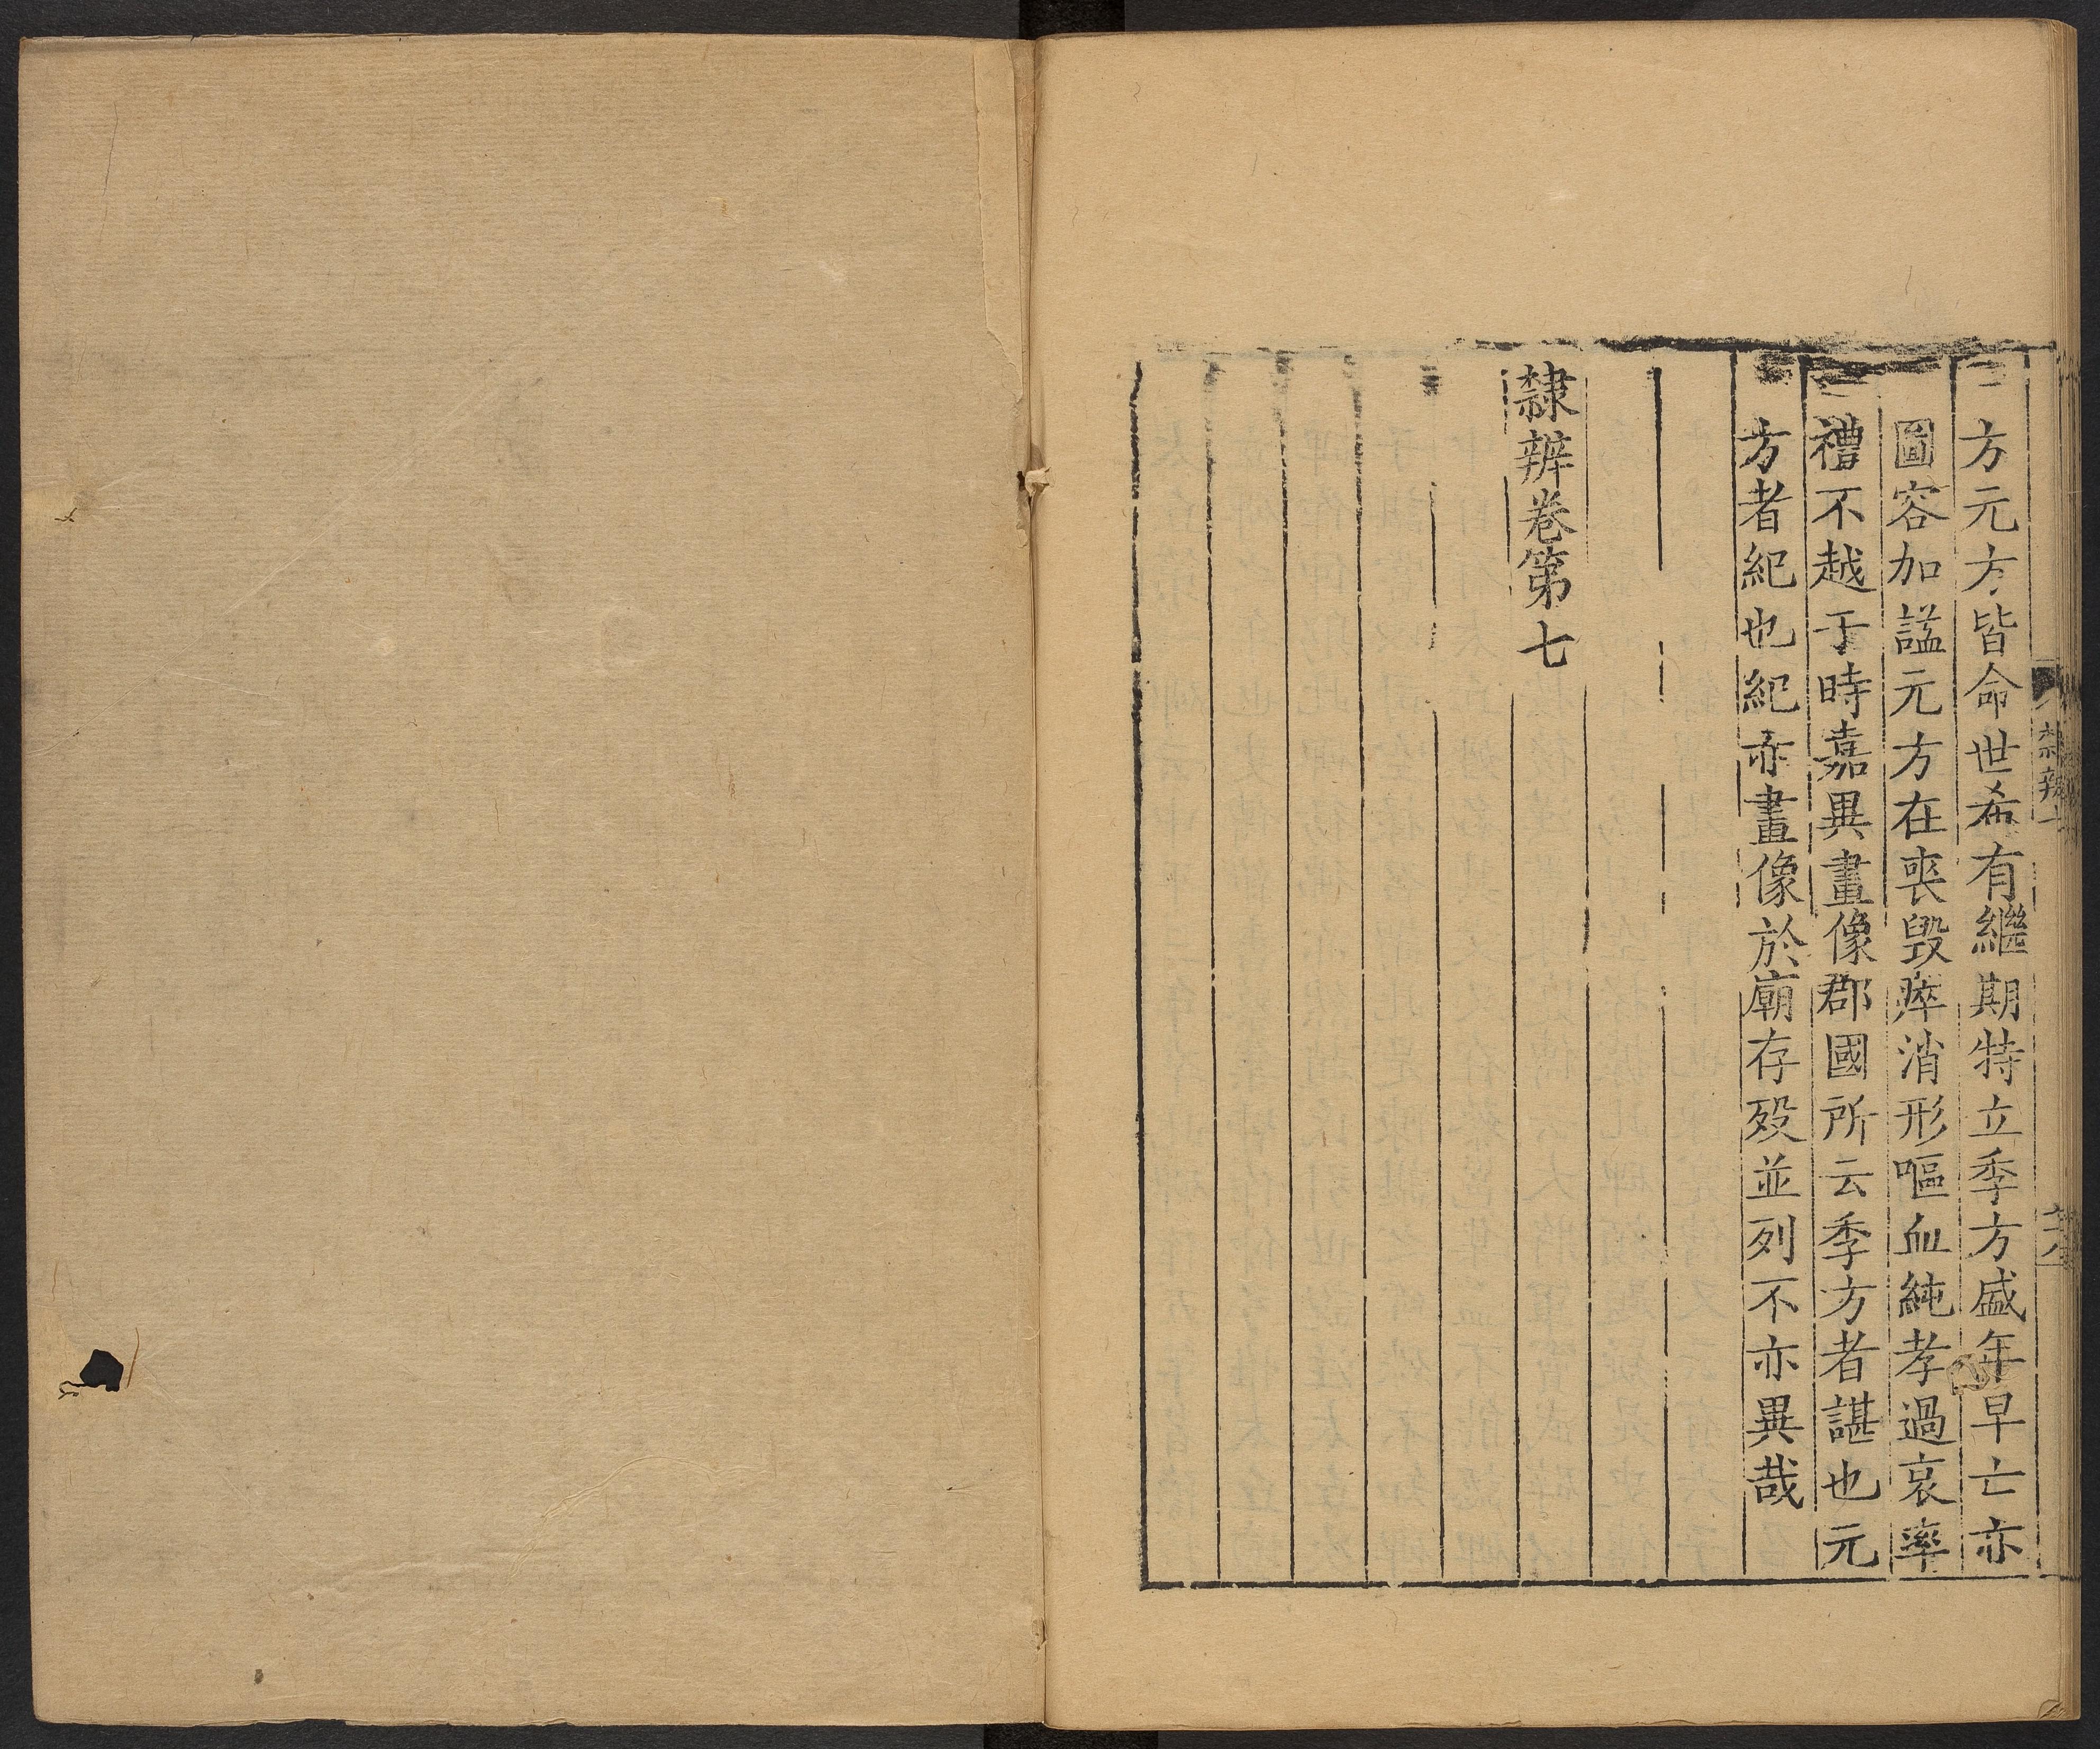 方元方皆命世希有繼期特立季方盛年早亡亦
圖容加諡元方在喪毀瘁消形嘔血純孝過哀率
禮不越于時嘉異畫像郡國所云季方者諶也元
方者紀也紀亦畫像於廟存歿並列不亦異哉
隸辨卷第七